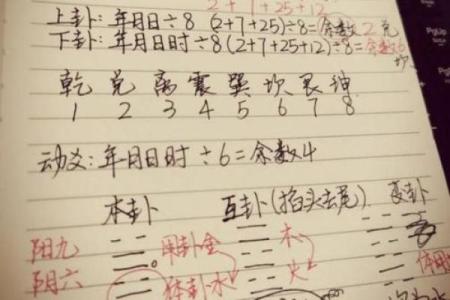 2+7+25+12
上卦：年月日÷8 (2+7+25)÷8=余数2兑
下卦：年月日时÷8(2+7+25+12)÷8=余数6坎
乾兑离震巽坎艮坤
1 2 3 4 5 6 7 8
动爻：年月日时÷6=余数4
本卦 互卦(掐头去尾) 变卦
阳九 用卦金 木
阴六 体卦水 火
PgUp